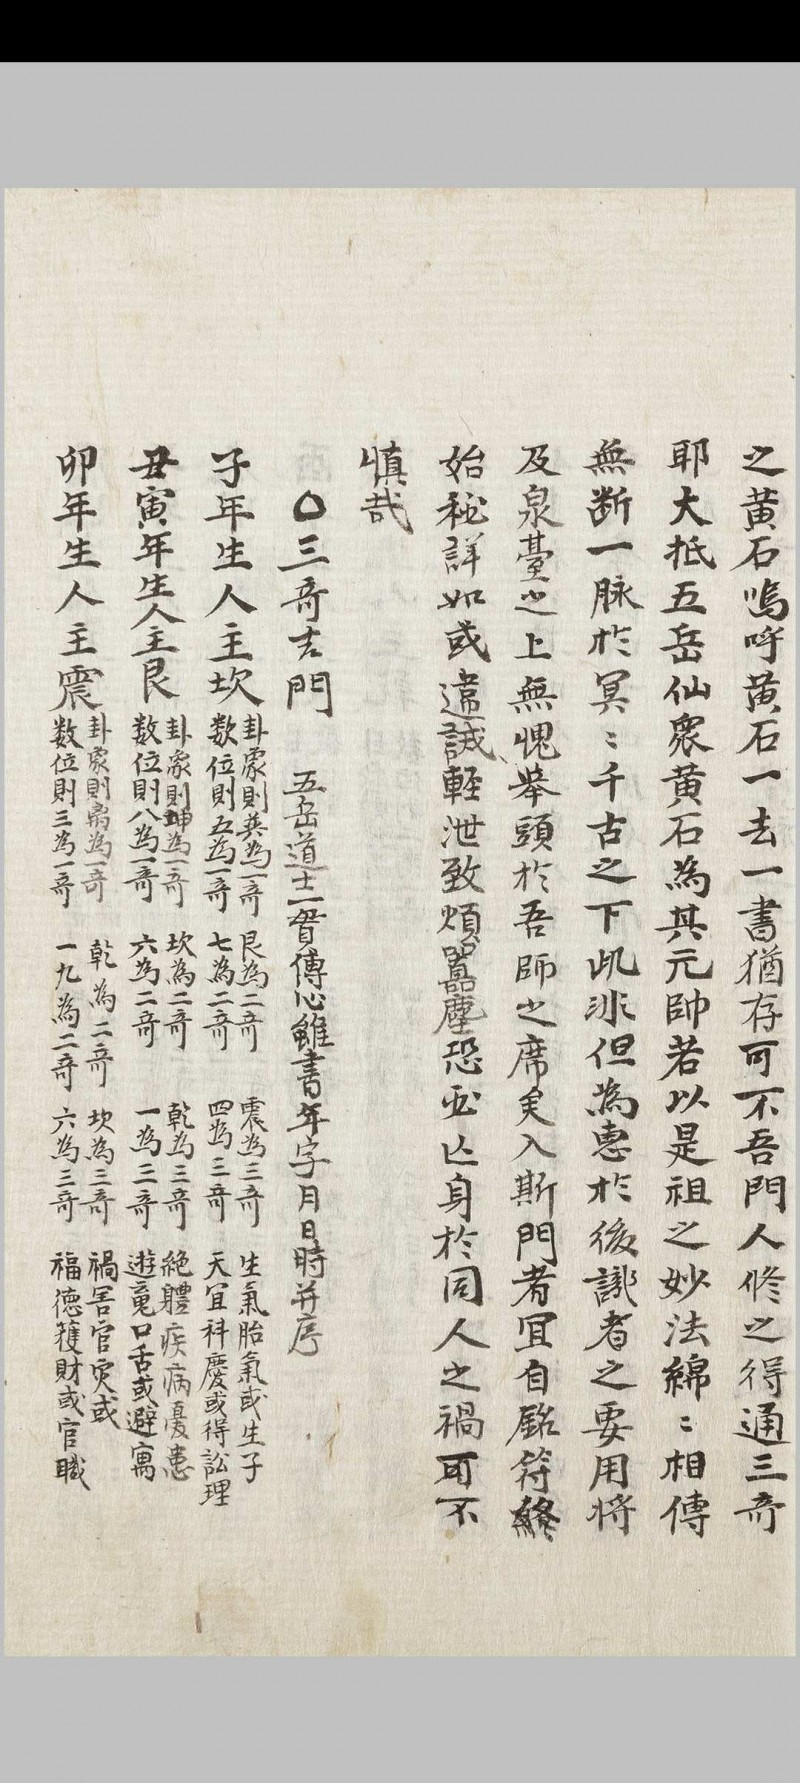 之黃石嗚呼黃石一去一書猶存可不吾門人修之得通三奇
耶大抵五岳仙衆黃石為其元帥若以是祖之妙法綿〻相傳
無断一脉於冥〻千古之下此非但為惠於後識者之要用將
及泉臺之上無愧举頭於吾師之席矣入斯門者宜自銘符終
始秘詳如或違誡輕泄致煩囂塵恐亚亡身於同人之禍可不
慎哉
○三奇吉門 五岳道士二督傳心雖書年字月日時并序
子年生人主坎 卦象則巽為一奇 艮為二奇 震為三奇 生氣胎氣或生子
数位則五為一奇 七為二奇 四為三奇 天宜科慶或得訟理
丑寅年生人主艮 卦象則坤為一奇 坎為二奇 乾為三奇 絶體疾病憂患
数位則八為一奇 六為二奇 一為三奇 遊䰟口舌或避寓
卯年生人主震 卦象則离為一奇 乾為二奇 坎為三奇 禍害官灾或
数位則三為一奇 一九為二奇 六為三奇 福德獲財或官職